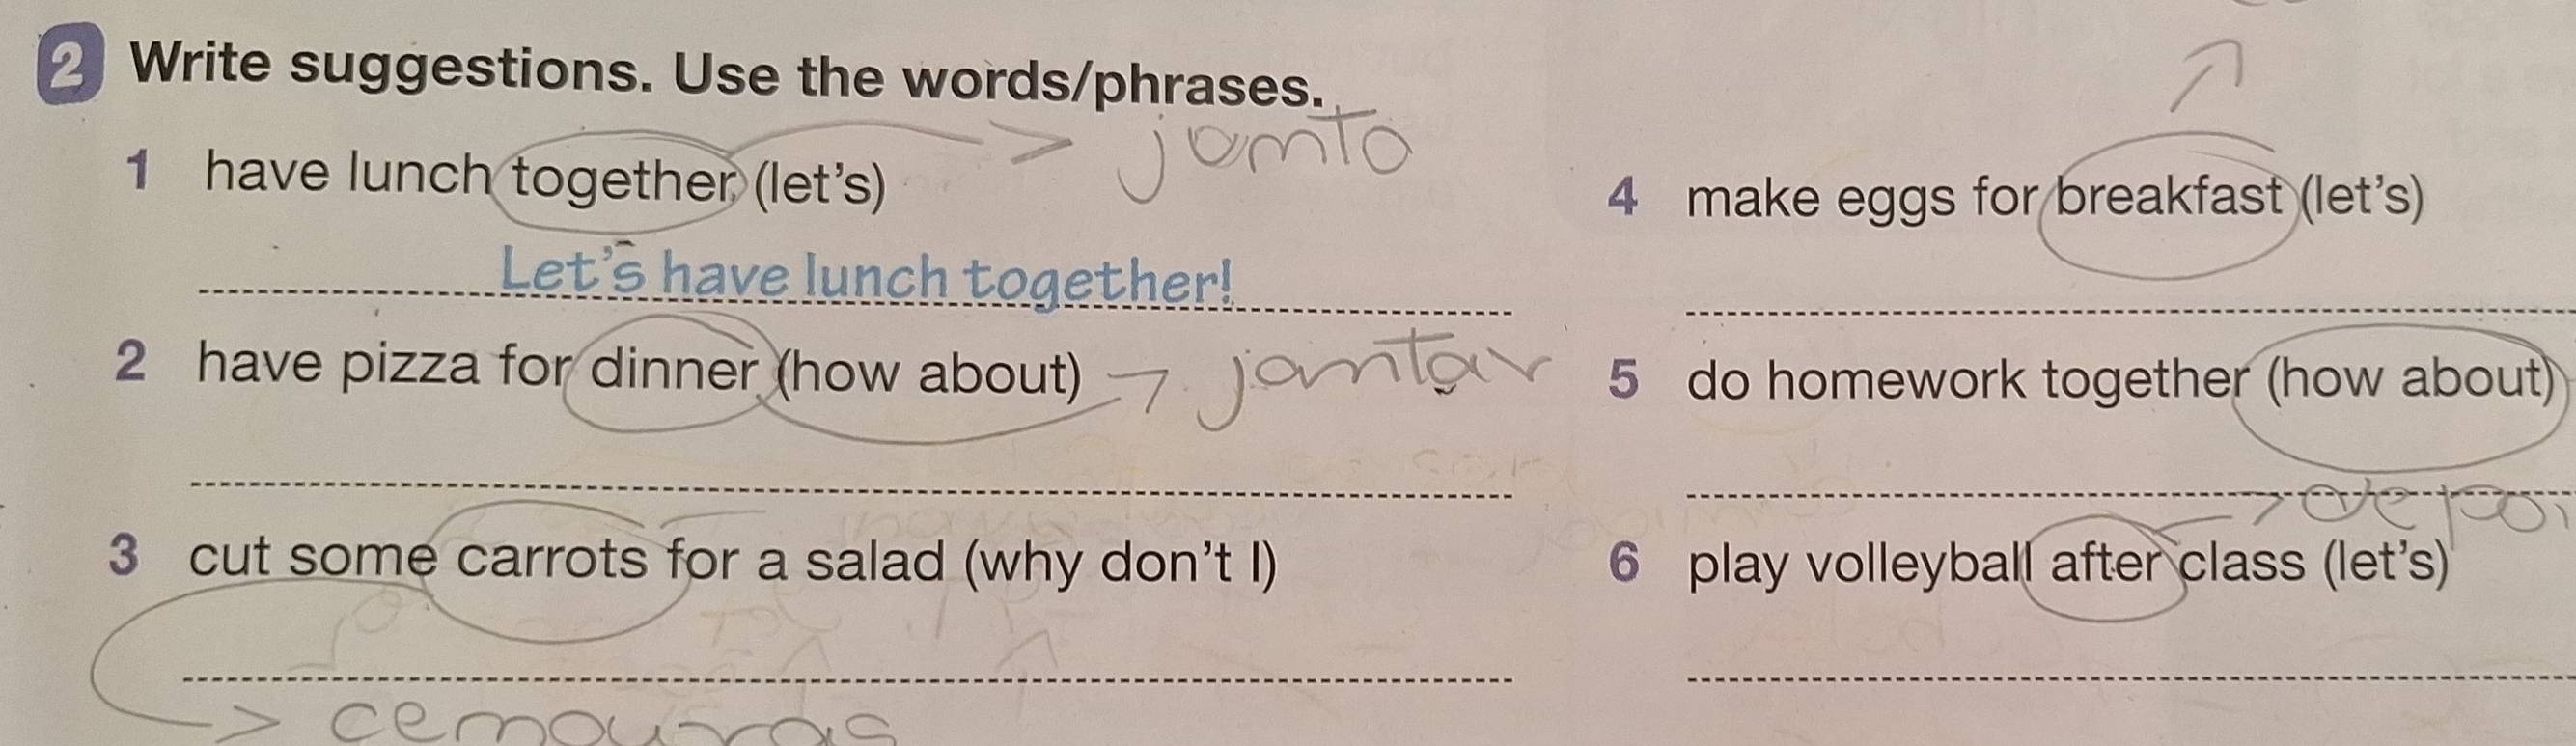 2 Write suggestions. Use the words/phrases.
1 have lunch together (let's) jomto
Let's have lunch together!
2 have pizza for dinner (how about) jamtar
3 cut some carrots for a salad (why don't I)
cemouras
4 make eggs for breakfast (let's)
5 do homework together (how about)
depoi
6 play volleyball after class (let's)